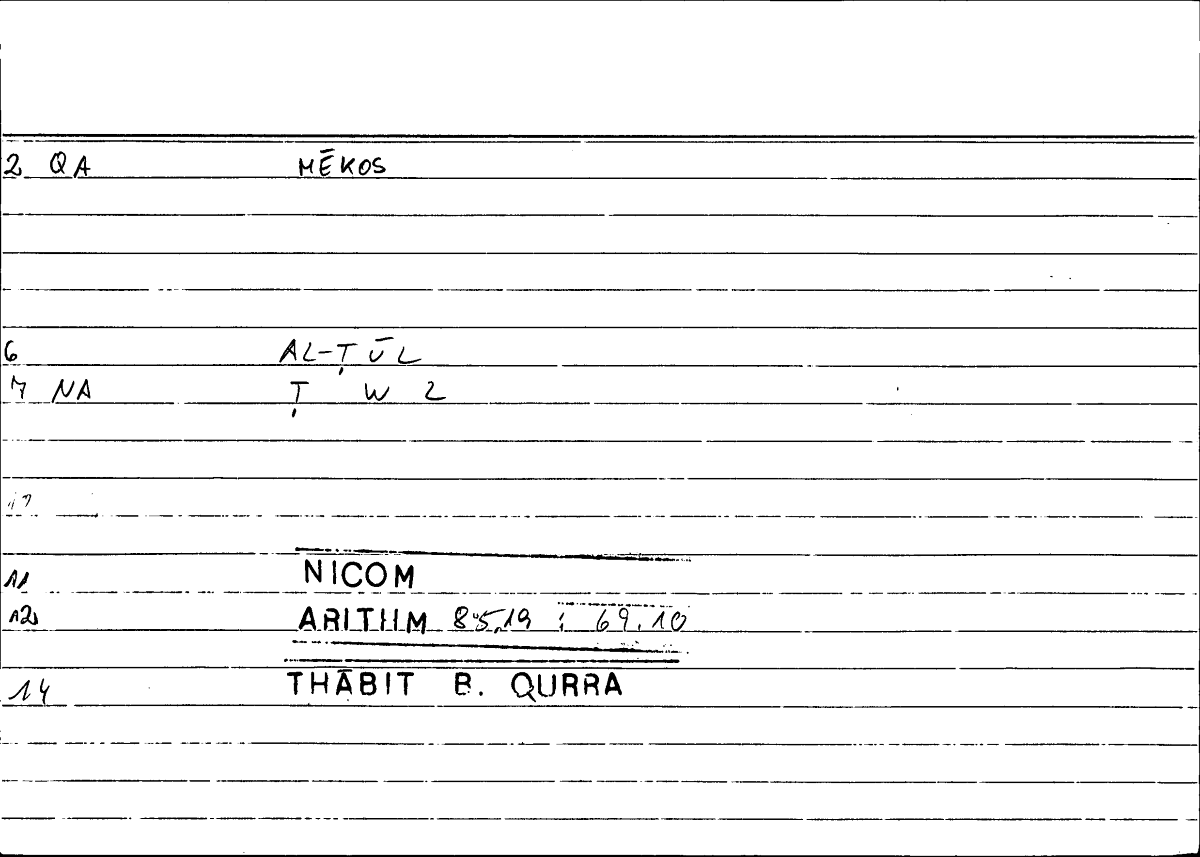 2 QA MĒKOS
6 AL-ṬŪL
7 NA Ṭ W L
11 NICOM
12 ARITHM 85,19 : 69.10
14 THĀBIT B. QURRA